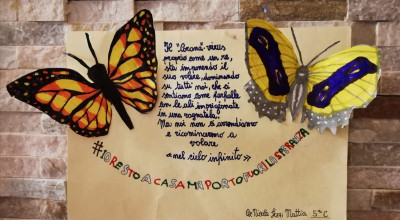 Il "Corona"-virus
proprio come un re,
sta imponendo il
suo volere, dominando
su tutti noi, che ci
sentiamo come farfalle
con le ali imprigionate
in una ragnatela.
Ma noi non ci arrendiamo
e ricominceremo a
volare
«nel cielo infinito»
#IORESTOACASAMAPORTOFUORILASPERANZA
De Nicola Mattia 5ª C